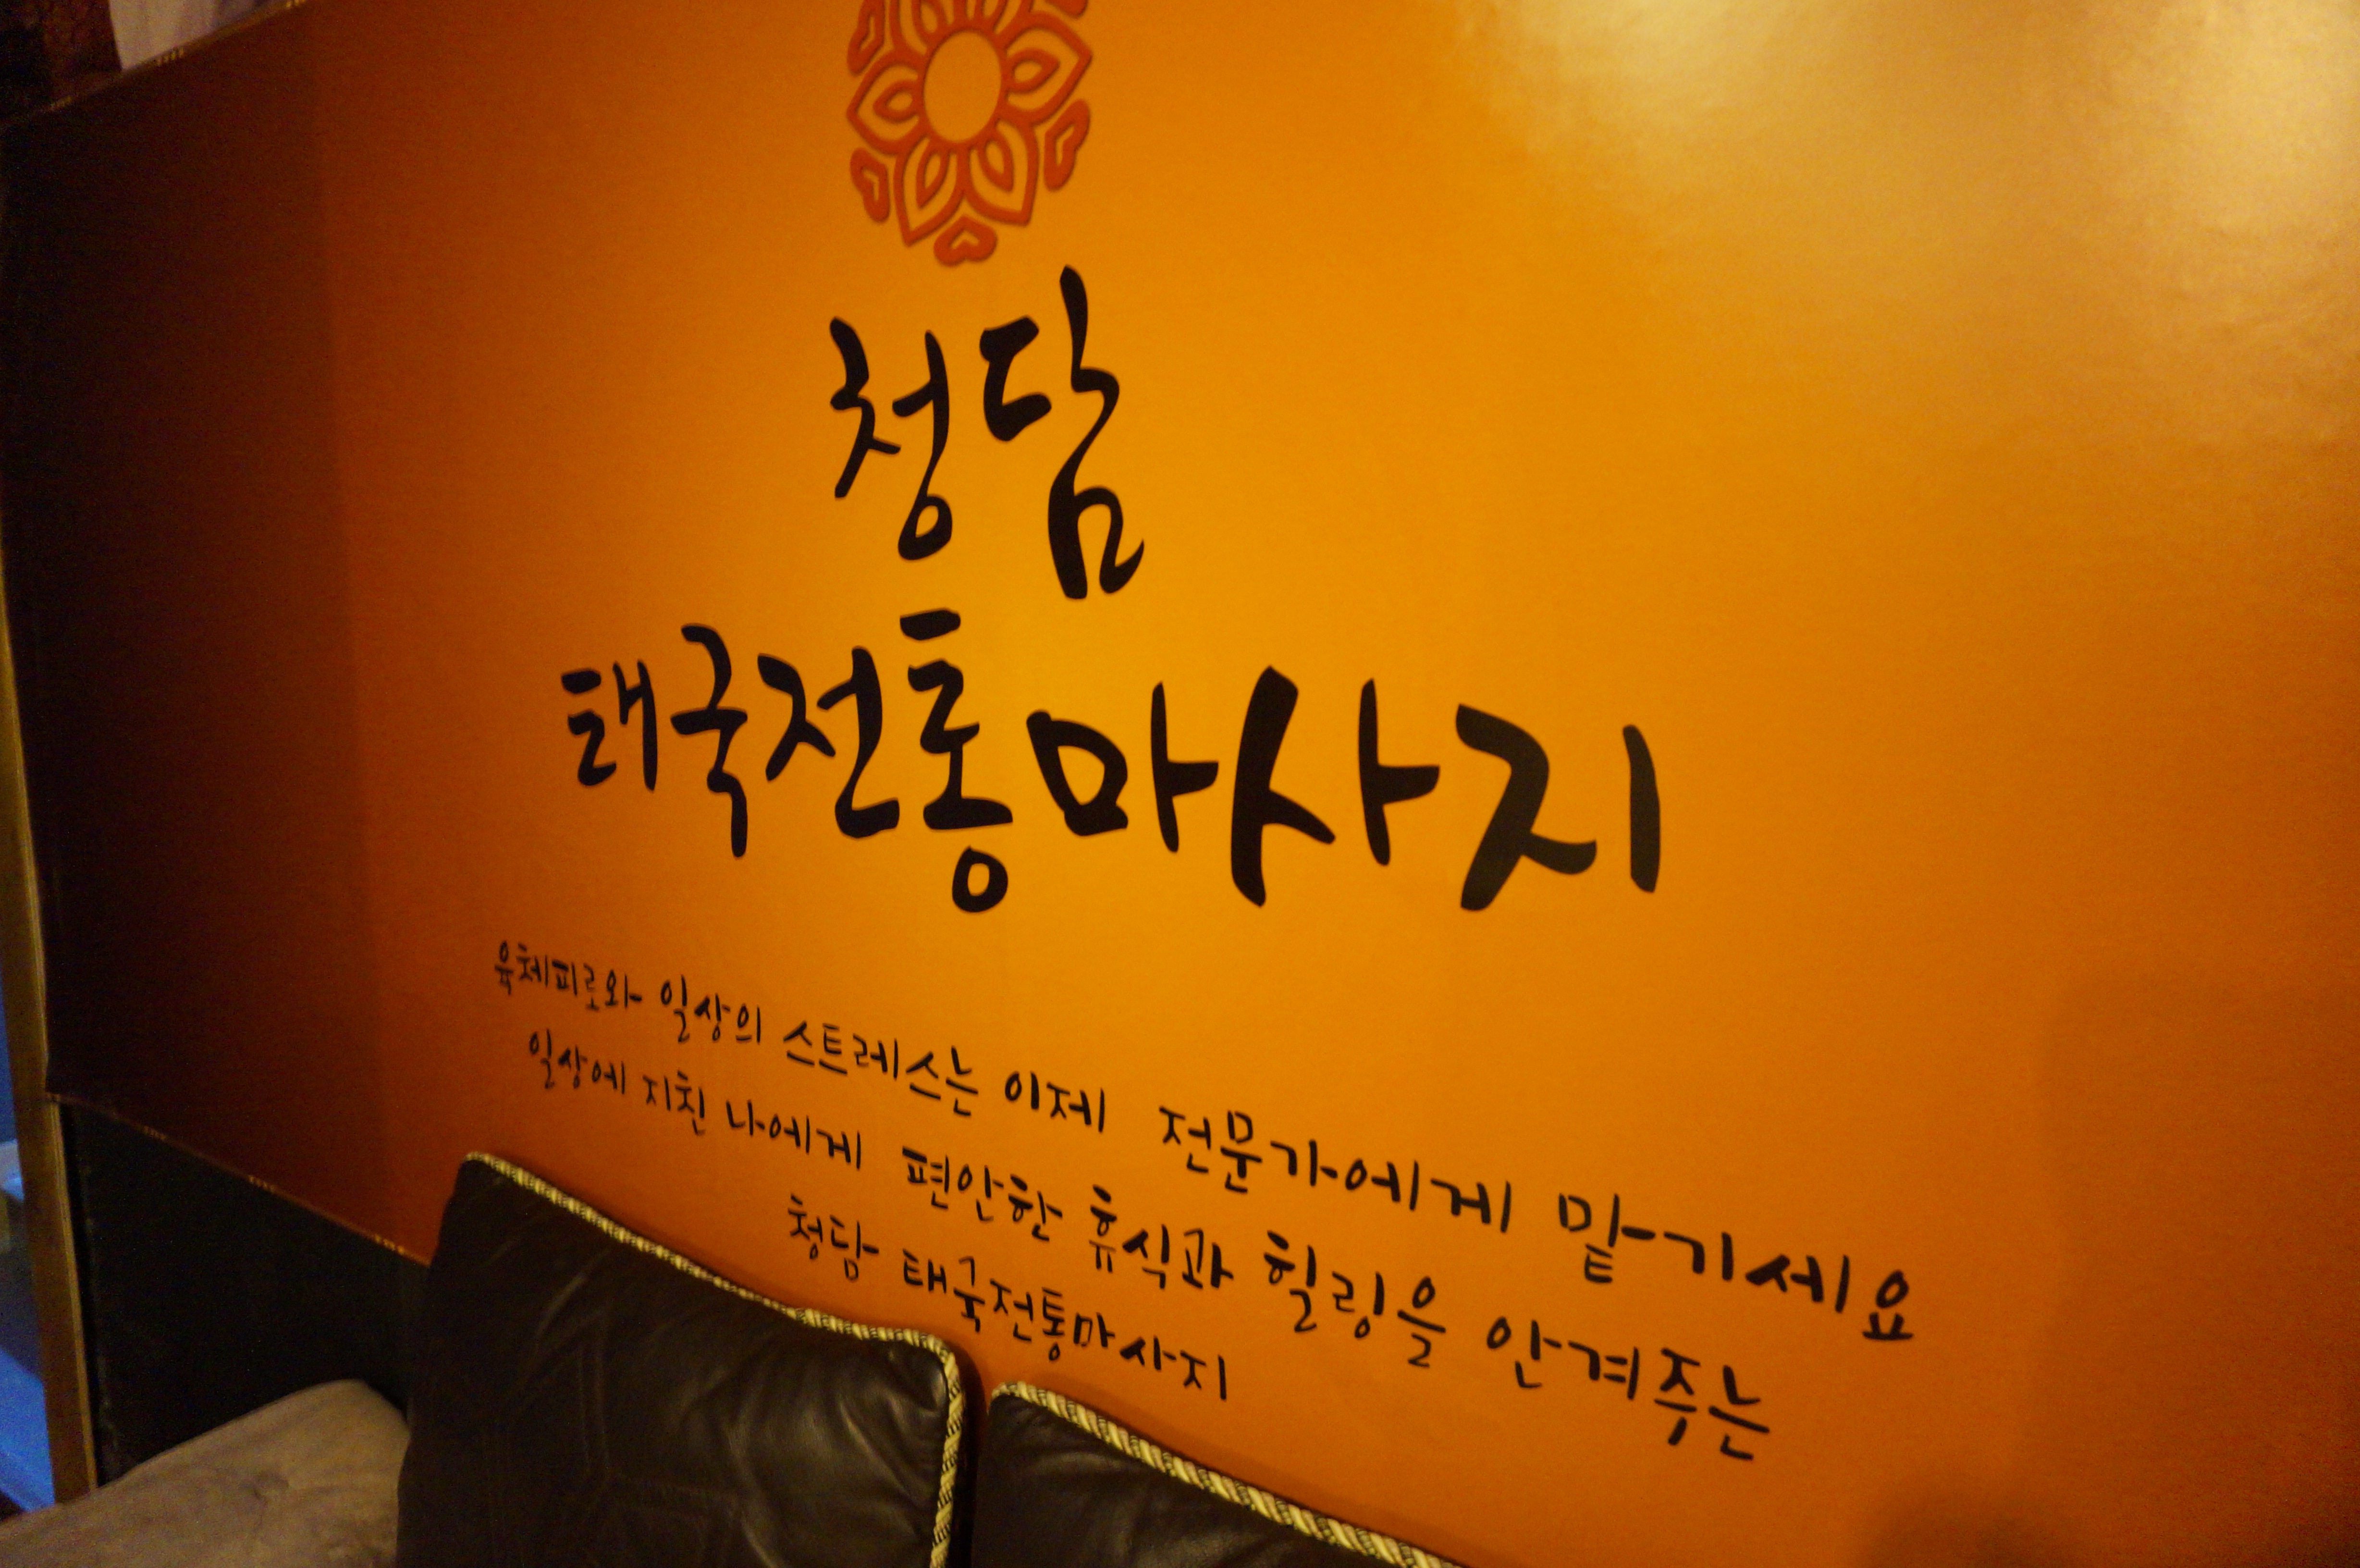 청담
태국전통마사지
육체피로와 일상의 스트레스는 이제 전문가에게 맡기세요
일상에 지친 나에게 편안한 휴식과 힐링을 안겨주는
청담 태국전통마사지